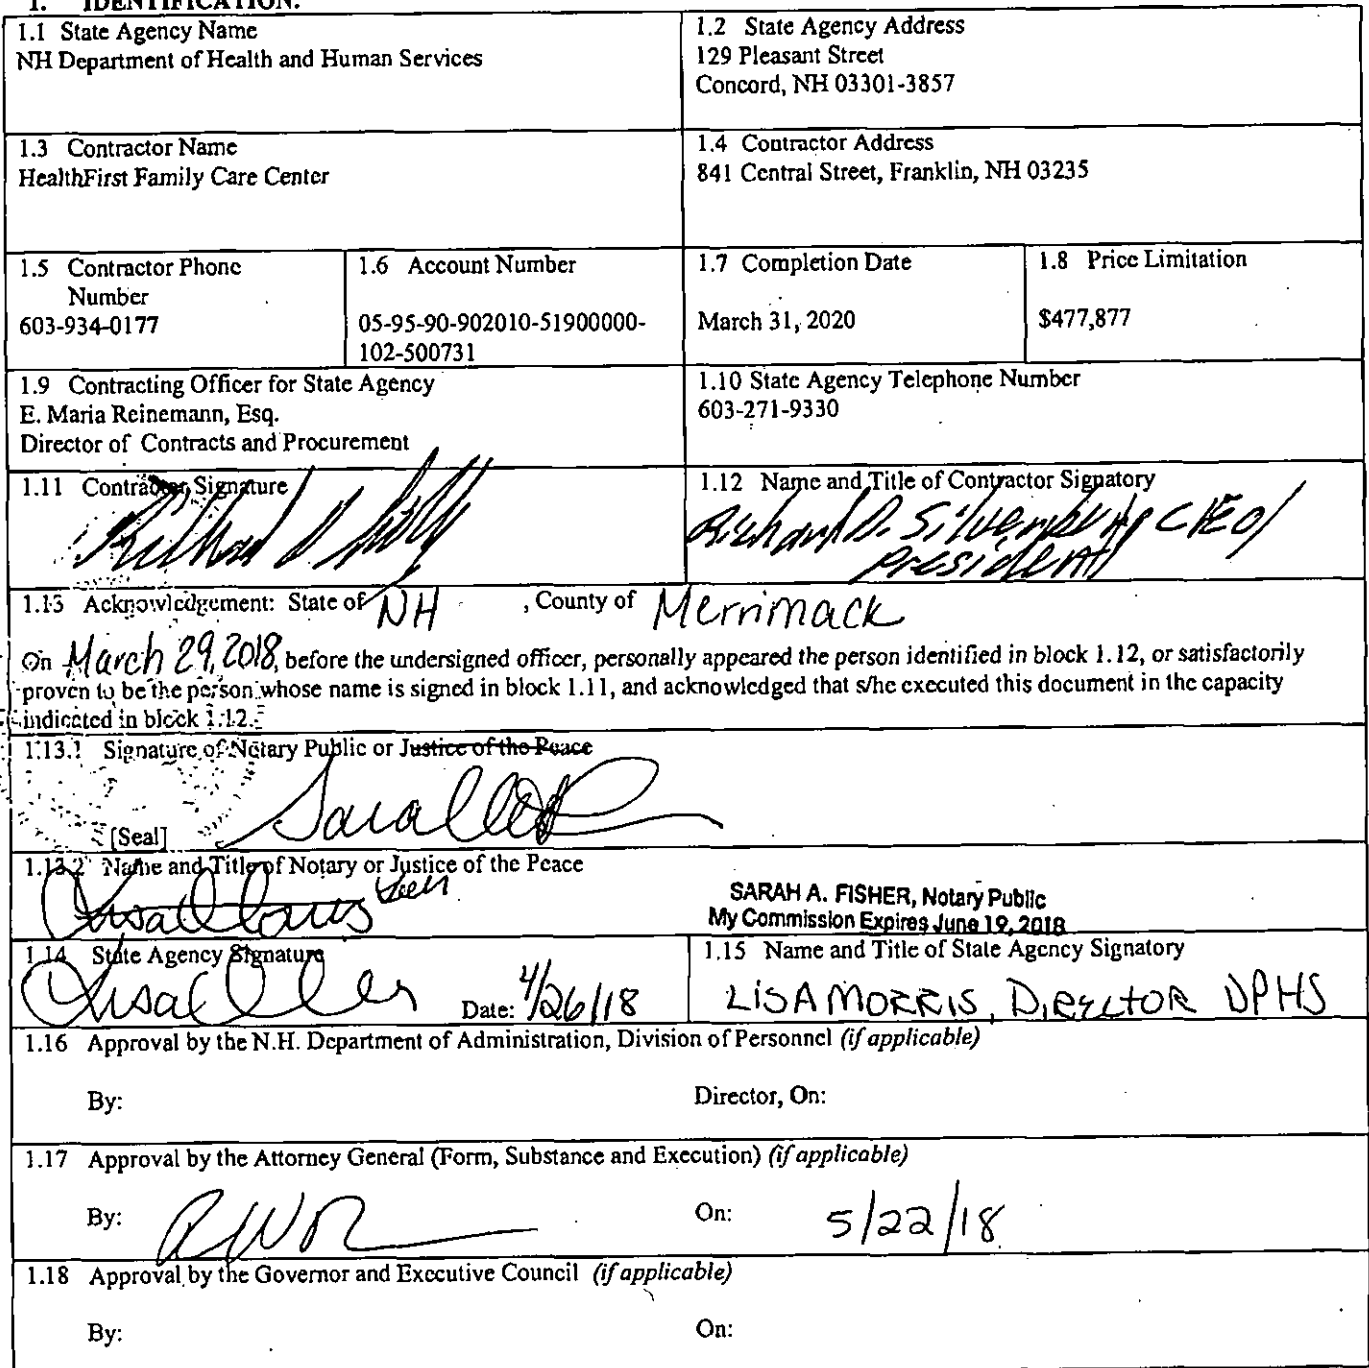 1. IDENTIFICATION.
1.1 State Agency Name
NH Department of Health and Human Services
1.2 State Agency Address
129 Pleasant Street
Concord, NH 03301-3857
1.3 Contractor Name
HealthFirst Family Care Center
1.4 Contractor Address
841 Central Street, Franklin, NH 03235
1.5 Contractor Phone
Number
603-934-0177
1.6 Account Number
05-95-90-902010-51900000-
102-500731
1.7 Completion Date
March 31, 2020
1.8 Price Limitation
$477,877
1.9 Contracting Officer for State Agency
E. Maria Reinemann, Esq.
Director of Contracts and Procurement
1.10 State Agency Telephone Number
603-271-9330
1.11 Contractor Signature
1.12 Name and Title of Contractor Signatory
Richard D. Silverberg CEO/
President
1.13 Acknowledgement: State of NH , County of Merrimack
On March 29, 2018, before the undersigned officer, personally appeared the person identified in block 1.12, or satisfactorily
proven to be the person whose name is signed in block 1.11, and acknowledged that s/he executed this document in the capacity
indicated in block 1.12.
1.13.1 Signature of Notary Public or Justice of the Peace
[Seal]
1.13.2 Name and Title of Notary or Justice of the Peace
SARAH A. FISHER, Notary Public
My Commission Expires June 19, 2018
1.14 State Agency Signature
Date: 4/26/18
1.15 Name and Title of State Agency Signatory
LISA MORRIS, DIRECTOR DPHS
1.16 Approval by the N.H. Department of Administration, Division of Personnel (if applicable)
By:
Director, On:
1.17 Approval by the Attorney General (Form, Substance and Execution) (if applicable)
By:
On: 5/22/18
1.18 Approval by the Governor and Executive Council (if applicable)
By:
On: